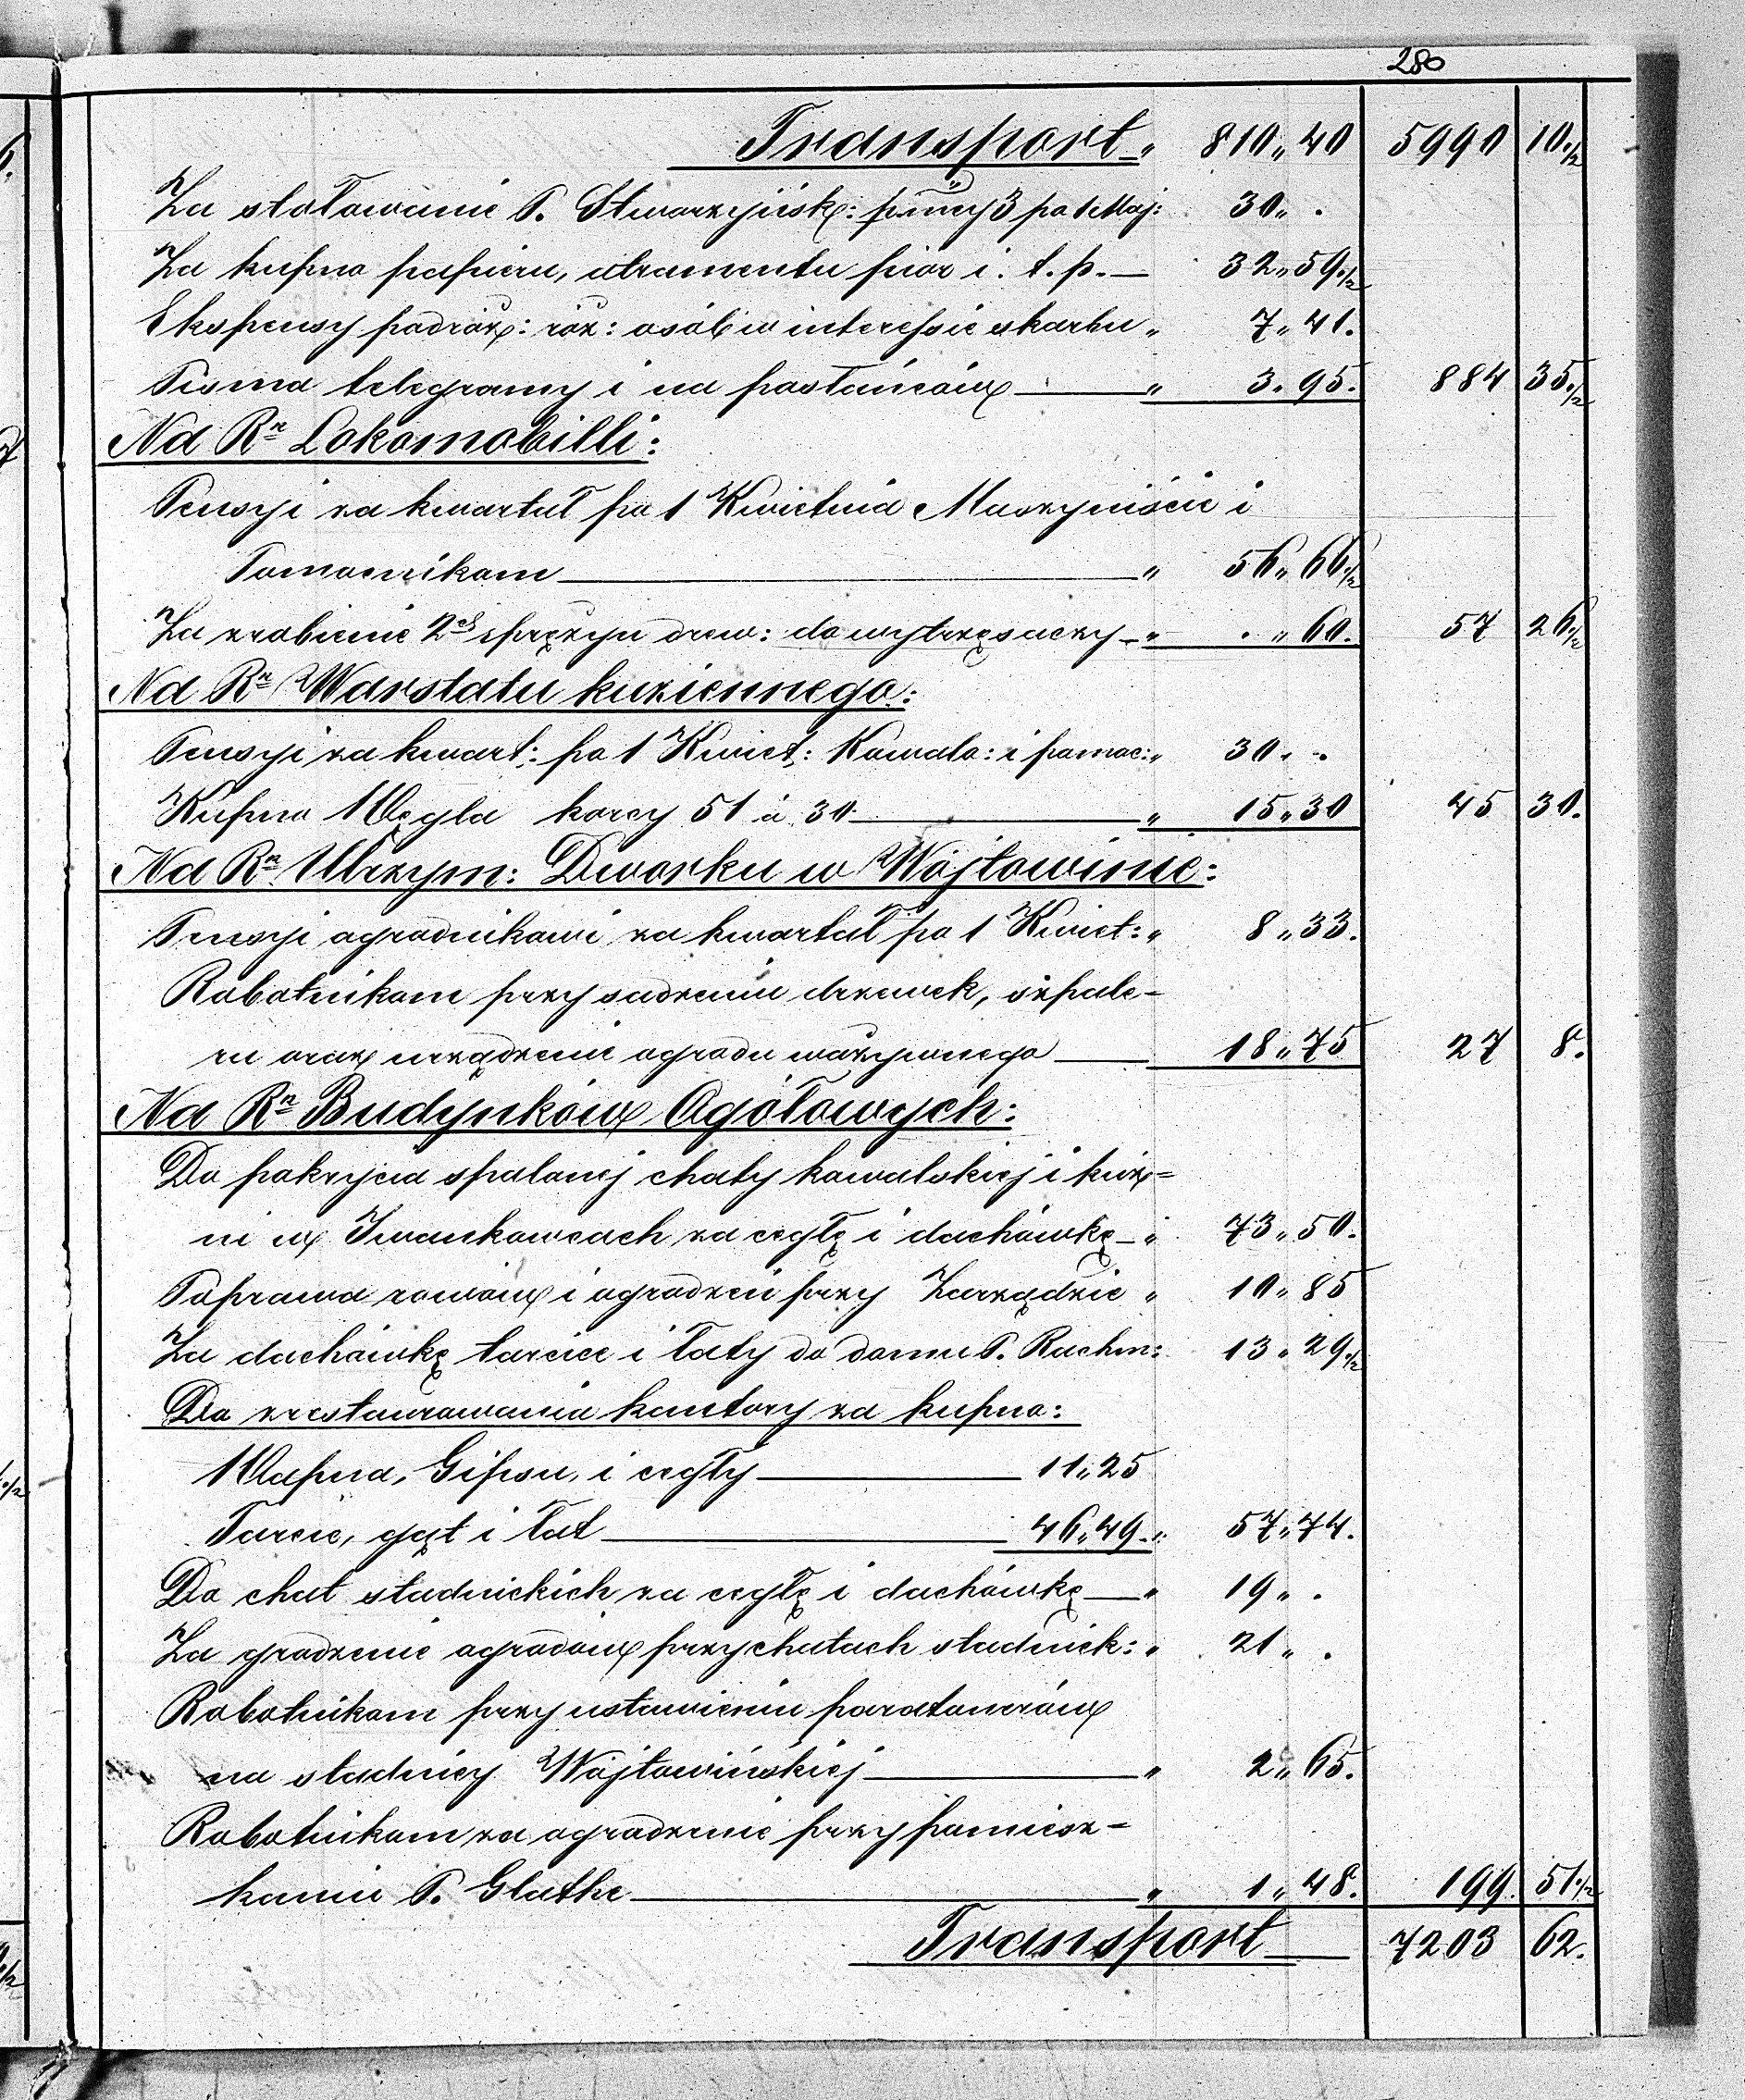 280
Transport „ 810 „ 40 5990 10 ½
Za stołowanie P. Stworzyńsk: p. mcy 3 po 1 Maj: 30 „ .
Za kupno papieru, atramentu piór i. t. p. — 32 „ 59 ½
Ekspensy podróż: róż: osób w interessie skarbu „ 7 „ 41.
Pisma telegramy i na posłańców — „ 3 „ 95. 884 35 ½
Na Rn Lokomobilli:
Pensyi za kwartał po 1 Kwietnia Maszyniście i
Pomocnikom — „ 56 „ 66 ½
Za zrobienie 2ch sprężyn drew: do wytrzęsaczy — „ . „ 60. 57 26 ½
Na Rn Warstatu kuziennego:
Pensyi za kwart: po 1 Kwiet: Kowalo: i pomoc: „ 30 „ .
Kupno Węgla korcy 51 à 30 — „ 15 „ 30 45 30.
Na Rn Utrzym: Dworku w Wójtowinie:
Pensyi ogrodnikowi za kwartał po 1 Kwiet: „ 8 „ 33.
Robotnikom przy sadzeniu drzewek, szpale-
ru oraz urządzenie ogrodu warzywnego — 18 „ 75 27 8.
Na Rn Budynków Ogółowych:
Do pokrycia spalonej chaty kowalskiej i kuź-
ni w Iwankowcach za cegłę i dachówkę — „ 73 „ 50.
Poprawa rowów i ogrodzeń przy Zarządzie „ 10 „ 85
Za dachówkę tarcice i łaty do domu P. Rachm: 13 „ 29 ½
Do zrestaurowania kantory za kupno:
Wapna, Gipsu, i cegły — 11 „ 25
Tarcic, gąt i łat — 46 „ 49 — „ 57 „ 74.
Do chat stadnickich za cegłę i dachówkę — „ 19 „ .
Za grodzenie ogrodów przy chatach stadnick: „ 21 „ .
Robotnikom przy ustawieniu paratonerów
na stadnicy Wójtowińskiej — „ 2 „ 65.
Robotnikom za ogrodzenie przy pomiesz-
kaniu P. Glatke — „ 1 „ 48. 199. 51 ½
Transport — 7203 62.